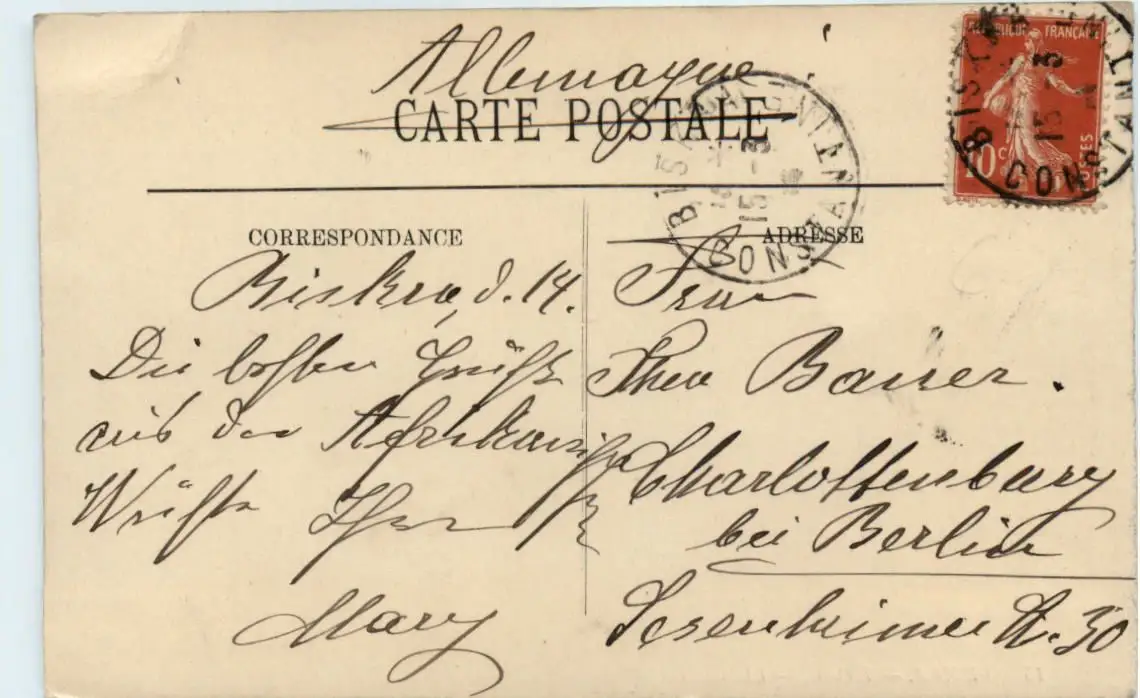 Allemagne
CARTE POSTALE
REPUBLIQUE FRANÇAISE
10 C
POSTES
BISKRA
15 - 3
CONSTANTINE
BISKRA
15 - 3
CONSTANTINE
CORRESPONDANCE
Biskra, d. 14.
Die besten Grüße
aus der Afrikanischen
Wüste Ihre
Mary
ADRESSE
Frau
Theo Bauer.
Charlottenburg
bei Berlin
Sesenheimer St. 30